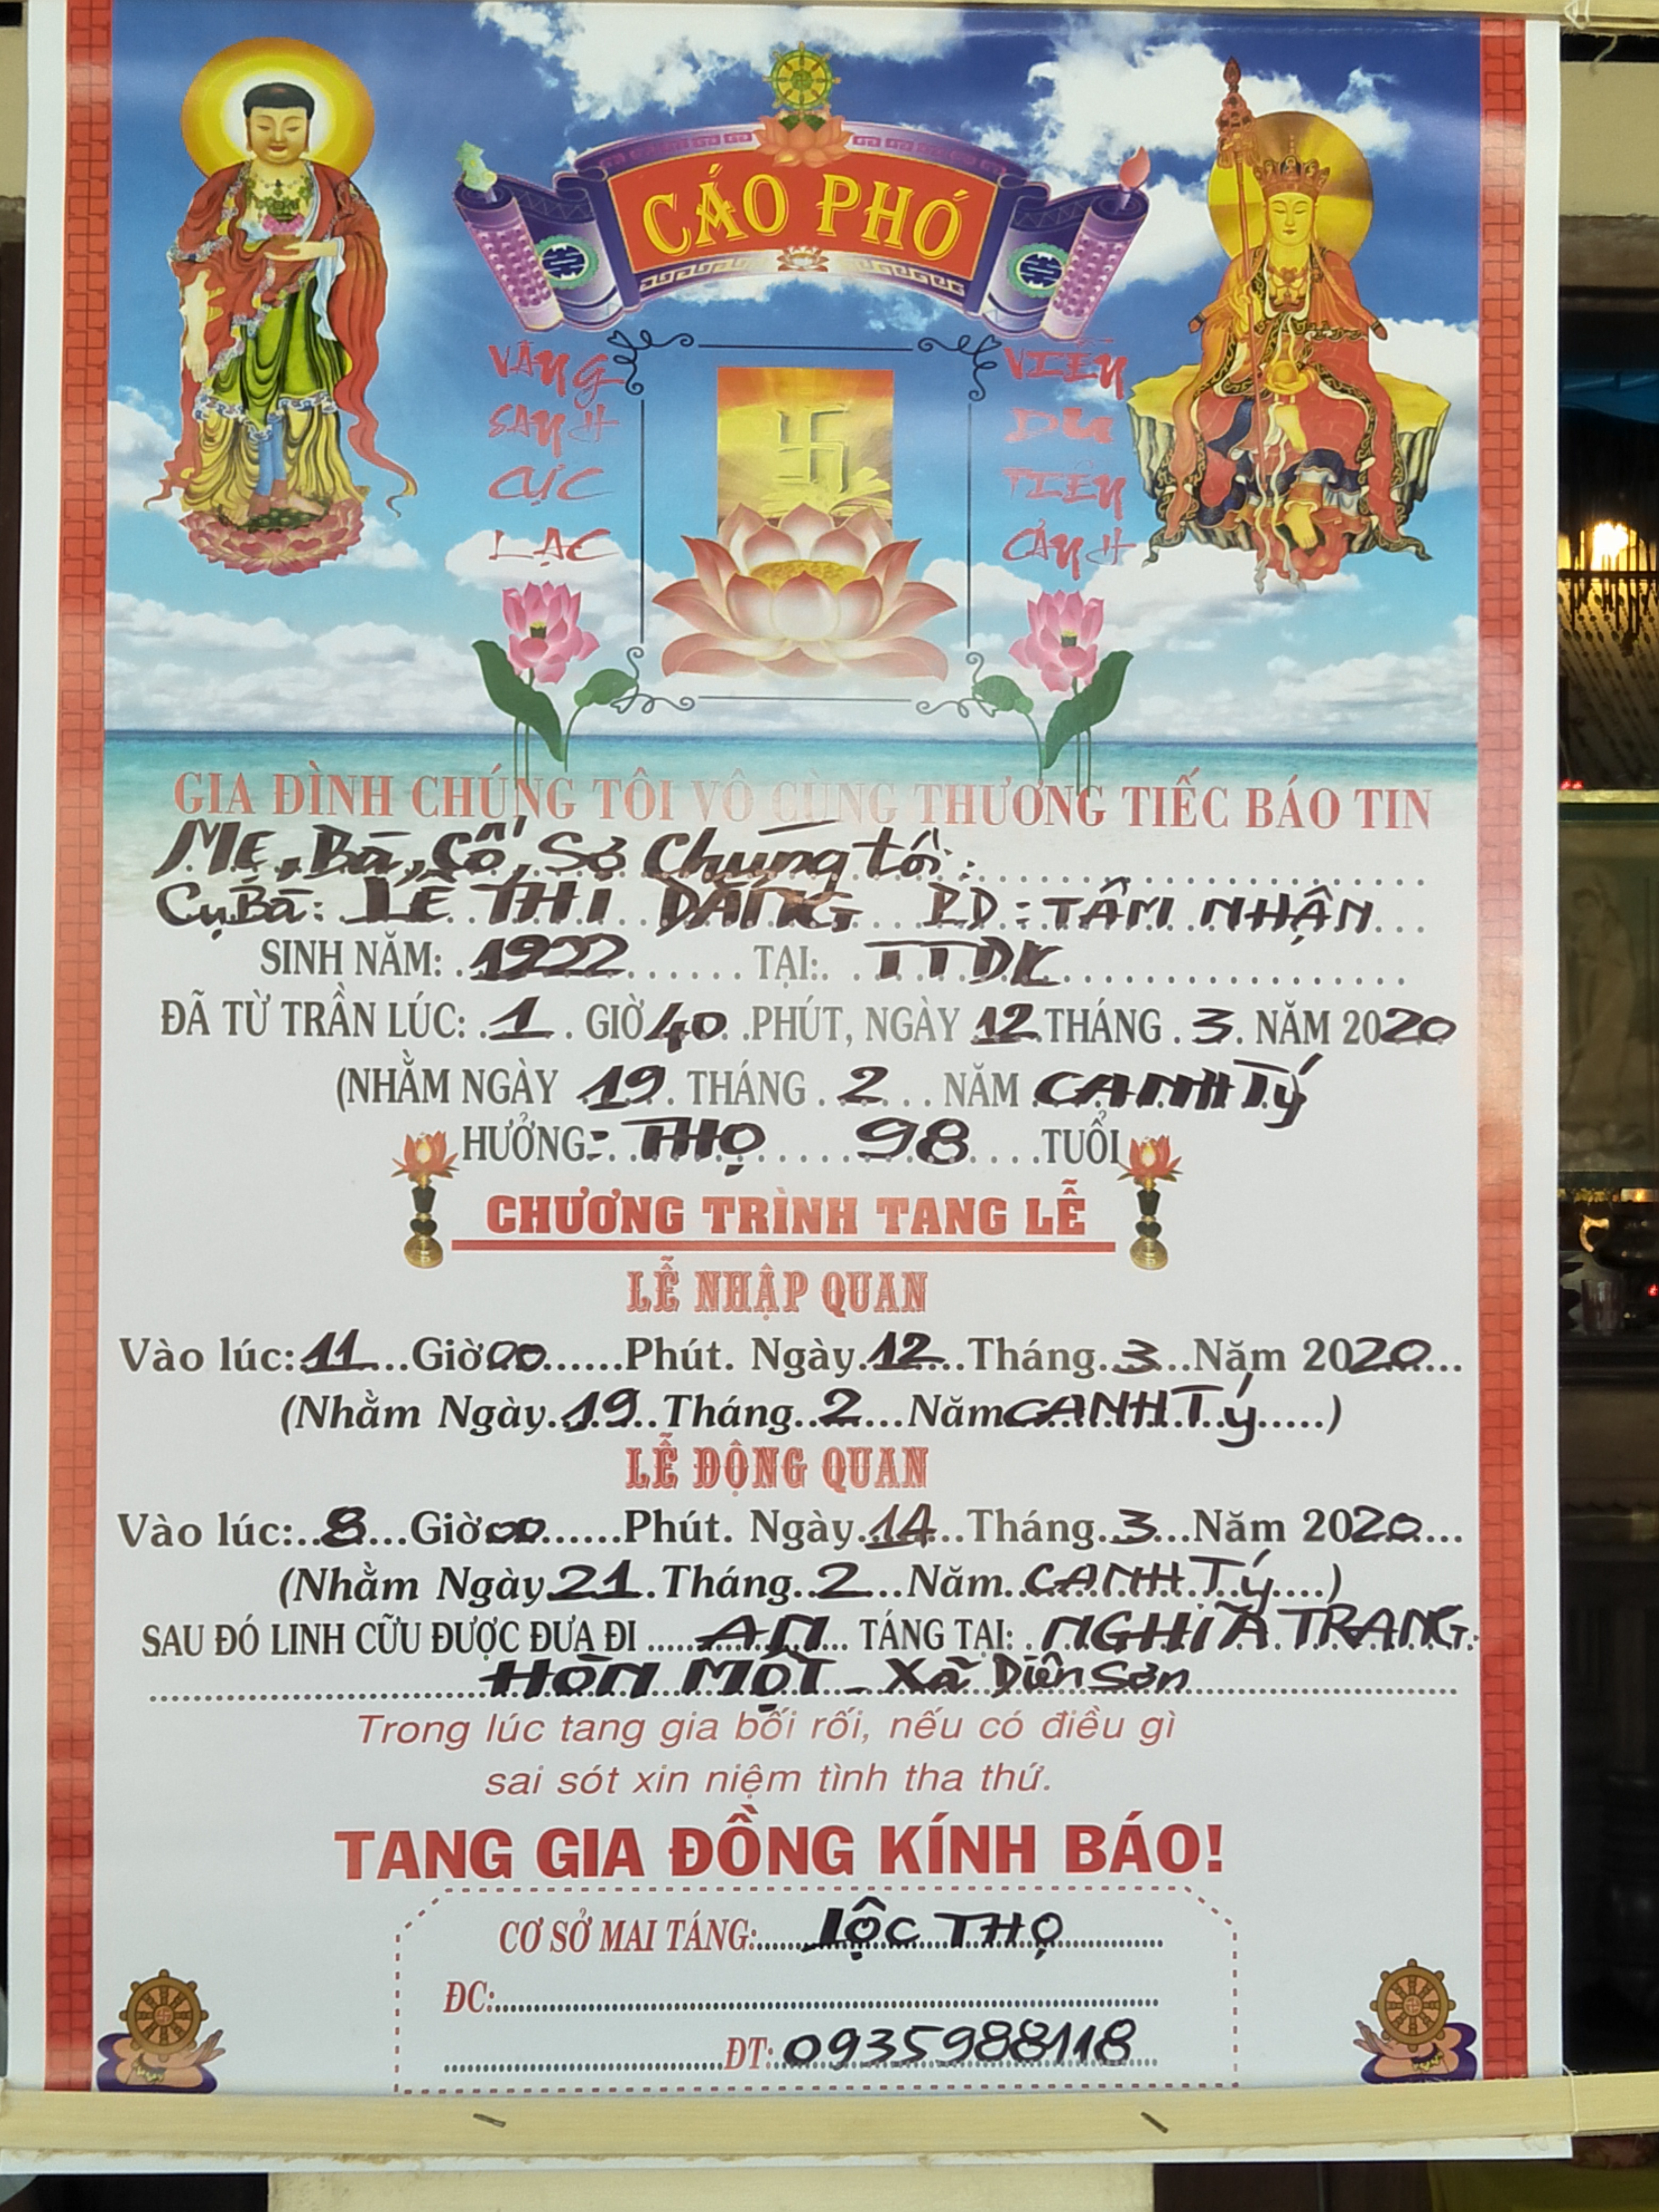 CÁO PHÓ
VÃNG
SANH
CỰC
LẠC
VIỄN
DU
TIÊN
CẢNH
GIA ĐÌNH CHÚNG TÔI VÔ CÙNG THƯƠNG TIẾC BÁO TIN
Mẹ, Bà, Cố, Sơ Chúng tôi:
Cụ Bà: LÊ THỊ DÁNG PD: TÂM NHẬN
SINH NĂM: 1922 TẠI: TTDK
ĐÃ TỪ TRẦN LÚC: 1 GIỜ 40 PHÚT, NGÀY 12 THÁNG 3 NĂM 2020
(NHẰM NGÀY 19 THÁNG 2 NĂM CANH Tý
HƯỞNG: THỌ 98 TUỔI
CHƯƠNG TRÌNH TANG LỄ
LỄ NHẬP QUAN
Vào lúc: 11 Giờ 00 Phút. Ngày 12 Tháng 3 Năm 2020
(Nhằm Ngày 19 Tháng 2 Năm CANH Tý)
LỄ ĐỘNG QUAN
Vào lúc: 8 Giờ 00 Phút. Ngày 14 Tháng 3 Năm 2020
(Nhằm Ngày 21 Tháng 2 Năm CANH Tý)
SAU ĐÓ LINH CỮU ĐƯỢC ĐƯA ĐI AN TÁNG TẠI: NGHĨA TRANG
HÒN MỘT - Xã Diên Sơn
Trong lúc tang gia bối rối, nếu có điều gì
sai sót xin niệm tình tha thứ.
TANG GIA ĐỒNG KÍNH BÁO!
CƠ SỞ MAI TÁNG: LỘC THỌ
ĐC:
ĐT: 0935988118